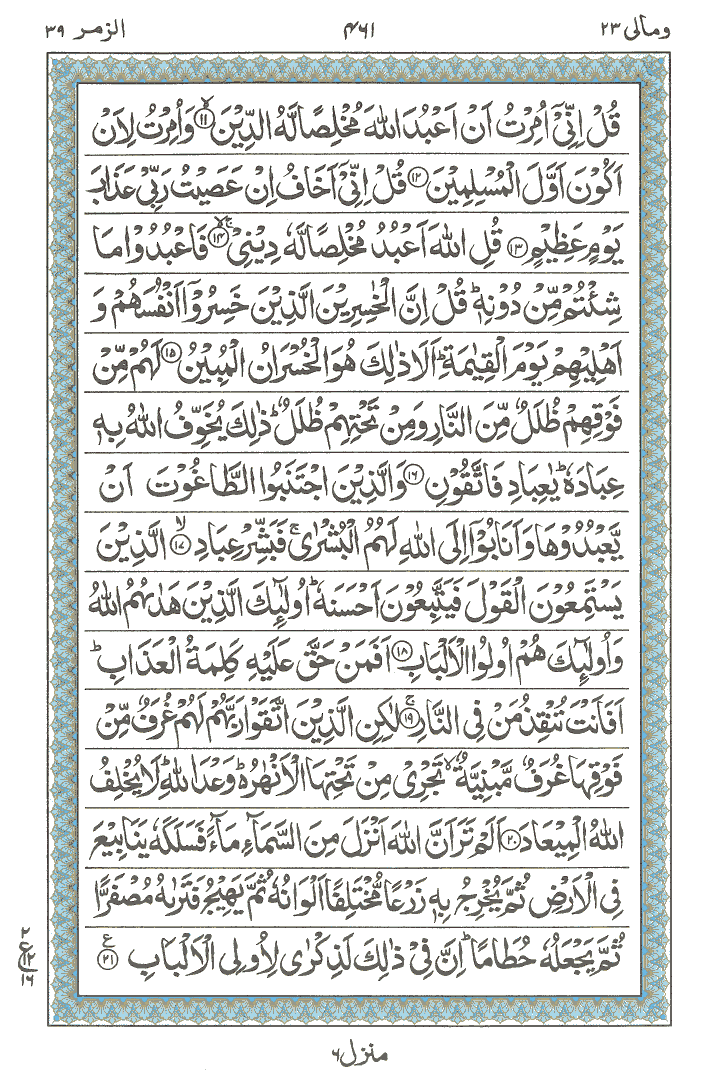 ومالی ۲۳ ۴۶۱ الزمر ۳۹
قُلْ اِنِّیْۤ اُمِرْتُ اَنْ اَعْبُدَ اللّٰهَ مُخْلِصًا لَّهُ الدِّیْنَ ۙ‏﴿۱۱﴾ وَاُمِرْتُ لِاَنْ
اَكُوْنَ اَوَّلَ الْمُسْلِمِیْنَ ﴿۱۲﴾ قُلْ اِنِّیْۤ اَخَافُ اِنْ عَصَیْتُ رَبِّیْ عَذَابَ
یَوْمٍ عَظِیْمٍ ﴿۱۳﴾ قُلِ اللّٰهَ اَعْبُدُ مُخْلِصًا لَّهٗ دِیْنِیْ ۙۚ﴿۱۴﴾ فَاعْبُدُوْا مَا
شِئْتُمْ مِّنْ دُوْنِهٖ ؕ قُلْ اِنَّ الْخٰسِرِیْنَ الَّذِیْنَ خَسِرُوْۤا اَنْفُسَهُمْ وَ
اَهْلِیْهِمْ یَوْمَ الْقِیٰمَةِ ؕ اَلَا ذٰلِكَ هُوَ الْخُسْرَانُ الْمُبِیْنُ ﴿۱۵﴾ لَهُمْ مِّنْ
فَوْقِهِمْ ظُلَلٌ مِّنَ النَّارِ وَمِنْ تَحْتِهِمْ ظُلَلٌ ؕ ذٰلِكَ یُخَوِّفُ اللّٰهُ بِهٖ
عِبَادَهٗ ؕ یٰعِبَادِ فَاتَّقُوْنِ ﴿۱۶﴾ وَالَّذِیْنَ اجْتَنَبُوا الطَّاغُوْتَ اَنْ
یَّعْبُدُوْهَا وَاَنَابُوْۤا اِلَی اللّٰهِ لَهُمُ الْبُشْرٰی ۚ فَبَشِّرْ عِبَادِ ۙ﴿۱۷﴾ الَّذِیْنَ
یَسْتَمِعُوْنَ الْقَوْلَ فَیَتَّبِعُوْنَ اَحْسَنَهٗ ؕ اُولٰٓئِكَ الَّذِیْنَ هَدٰىهُمُ اللّٰهُ
وَاُولٰٓئِكَ هُمْ اُولُوا الْاَلْبَابِ ﴿۱۸﴾ اَفَمَنْ حَقَّ عَلَیْهِ كَلِمَةُ الْعَذَابِ ؕ
اَفَاَنْتَ تُنْقِذُ مَنْ فِی النَّارِ ۚ﴿۱۹﴾ لٰكِنِ الَّذِیْنَ اتَّقَوْا رَبَّهُمْ لَهُمْ غُرَفٌ مِّنْ
فَوْقِهَا غُرَفٌ مَّبْنِیَّةٌ ۙ تَجْرِیْ مِنْ تَحْتِهَا الْاَنْهٰرُ ؕ وَعْدَ اللّٰهِ ؕ لَا یُخْلِفُ
اللّٰهُ الْمِیْعَادَ ﴿۲۰﴾ اَلَمْ تَرَ اَنَّ اللّٰهَ اَنْزَلَ مِنَ السَّمَآءِ مَآءً فَسَلَكَهٗ یَنَابِیْعَ
فِی الْاَرْضِ ثُمَّ یُخْرِجُ بِهٖ زَرْعًا مُّخْتَلِفًا اَلْوَانُهٗ ثُمَّ یَهِیْجُ فَتَرٰىهُ مُصْفَرًّا
ثُمَّ یَجْعَلُهٗ حُطَامًا ؕ اِنَّ فِیْ ذٰلِكَ لَذِكْرٰی لِاُولِی الْاَلْبَابِ ﴿۲۱﴾ ع
۲
ع ۱۲
۱۶
منزل ۶